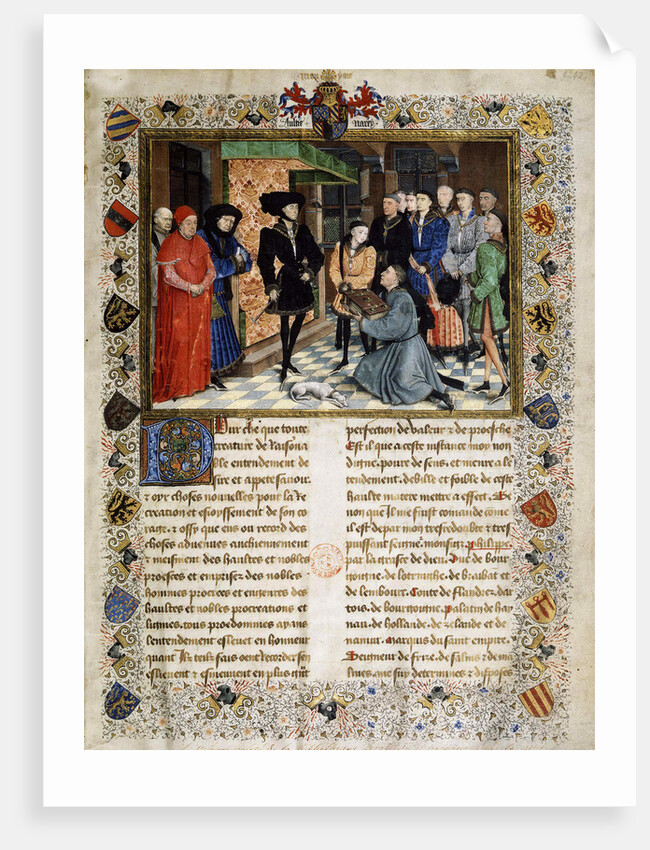 Aultre
Naray
Pour che que toute
creature de Raison
ble entendement de
sire et appete sauoir
& oyr choses nouuelles pour la Re
creation et esioyssement de son co
rage. & ossy que ens ou record des
choses aduenues anchiennement
& meisment des haultes et nobles
proesces et emprises des nobles
hommes procrees et engenres des
haultes et nobles procreations et
lignies, tous preudommes ayans
lentendement esleuet en honneur
quant Ilz telz fais oent Recorder sen
esliesent & esmeuuent en plus gñt
perfection de valeur & de proesche
Est il que a ceste instance moy non
digne, poure de sens, et menre a le
tendement. debille et foible de ceste
haulte matere mettre a effect. Se
non que Il me fuist comandé comē
il est de par mon tresredoubté & tres
puissant seigñr. monsigr̄ phelippe
par la grasce de dieu. Duc de bour
goingne. de lotrinche. de brabant et
de lembourc. Conte de flandres. dar
tois. de bourgoingne. palatin de hay
nau. de hollande. de zelande et de
namur. marquis du saint empire.
Seigneur de frize. de salins & de ma
lines. me suy determines & disposes